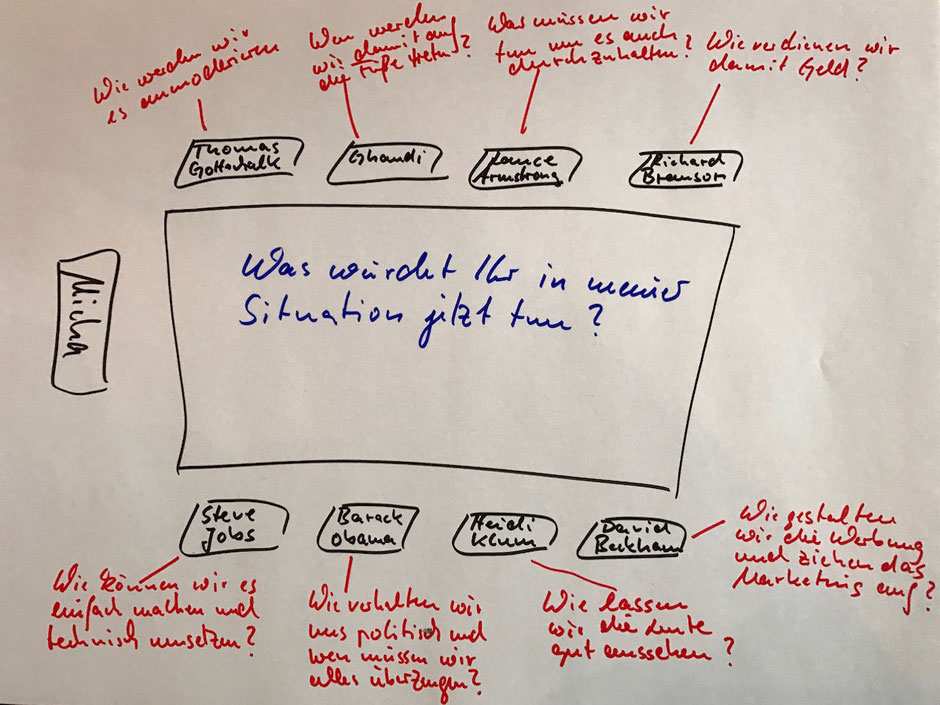 Wie werden wir
es anmoderieren
Wen werden
wir damit auf
die Füße treten?
Was müssen wir
tun um es auch
durchzuhalten?
Wie verdienen wir
damit Geld?
Thomas
Gottschalk
Ghandi
Lance
Armstrong
Richard
Branson
Micha
Was würdet Ihr in meiner
Situation jetzt tun?
Steve
Jobs
Barack
Obama
Heidi
Klum
David
Beckham
Wie können wir es
einfach machen und
technisch umsetzen?
Wie verhalten wir
uns politisch und
wen müssen wir
alles überzeugen?
Wie lassen
wir die Leute
gut aussehen?
Wie gestalten
wir die Werbung
und ziehen das
Marketing auf?